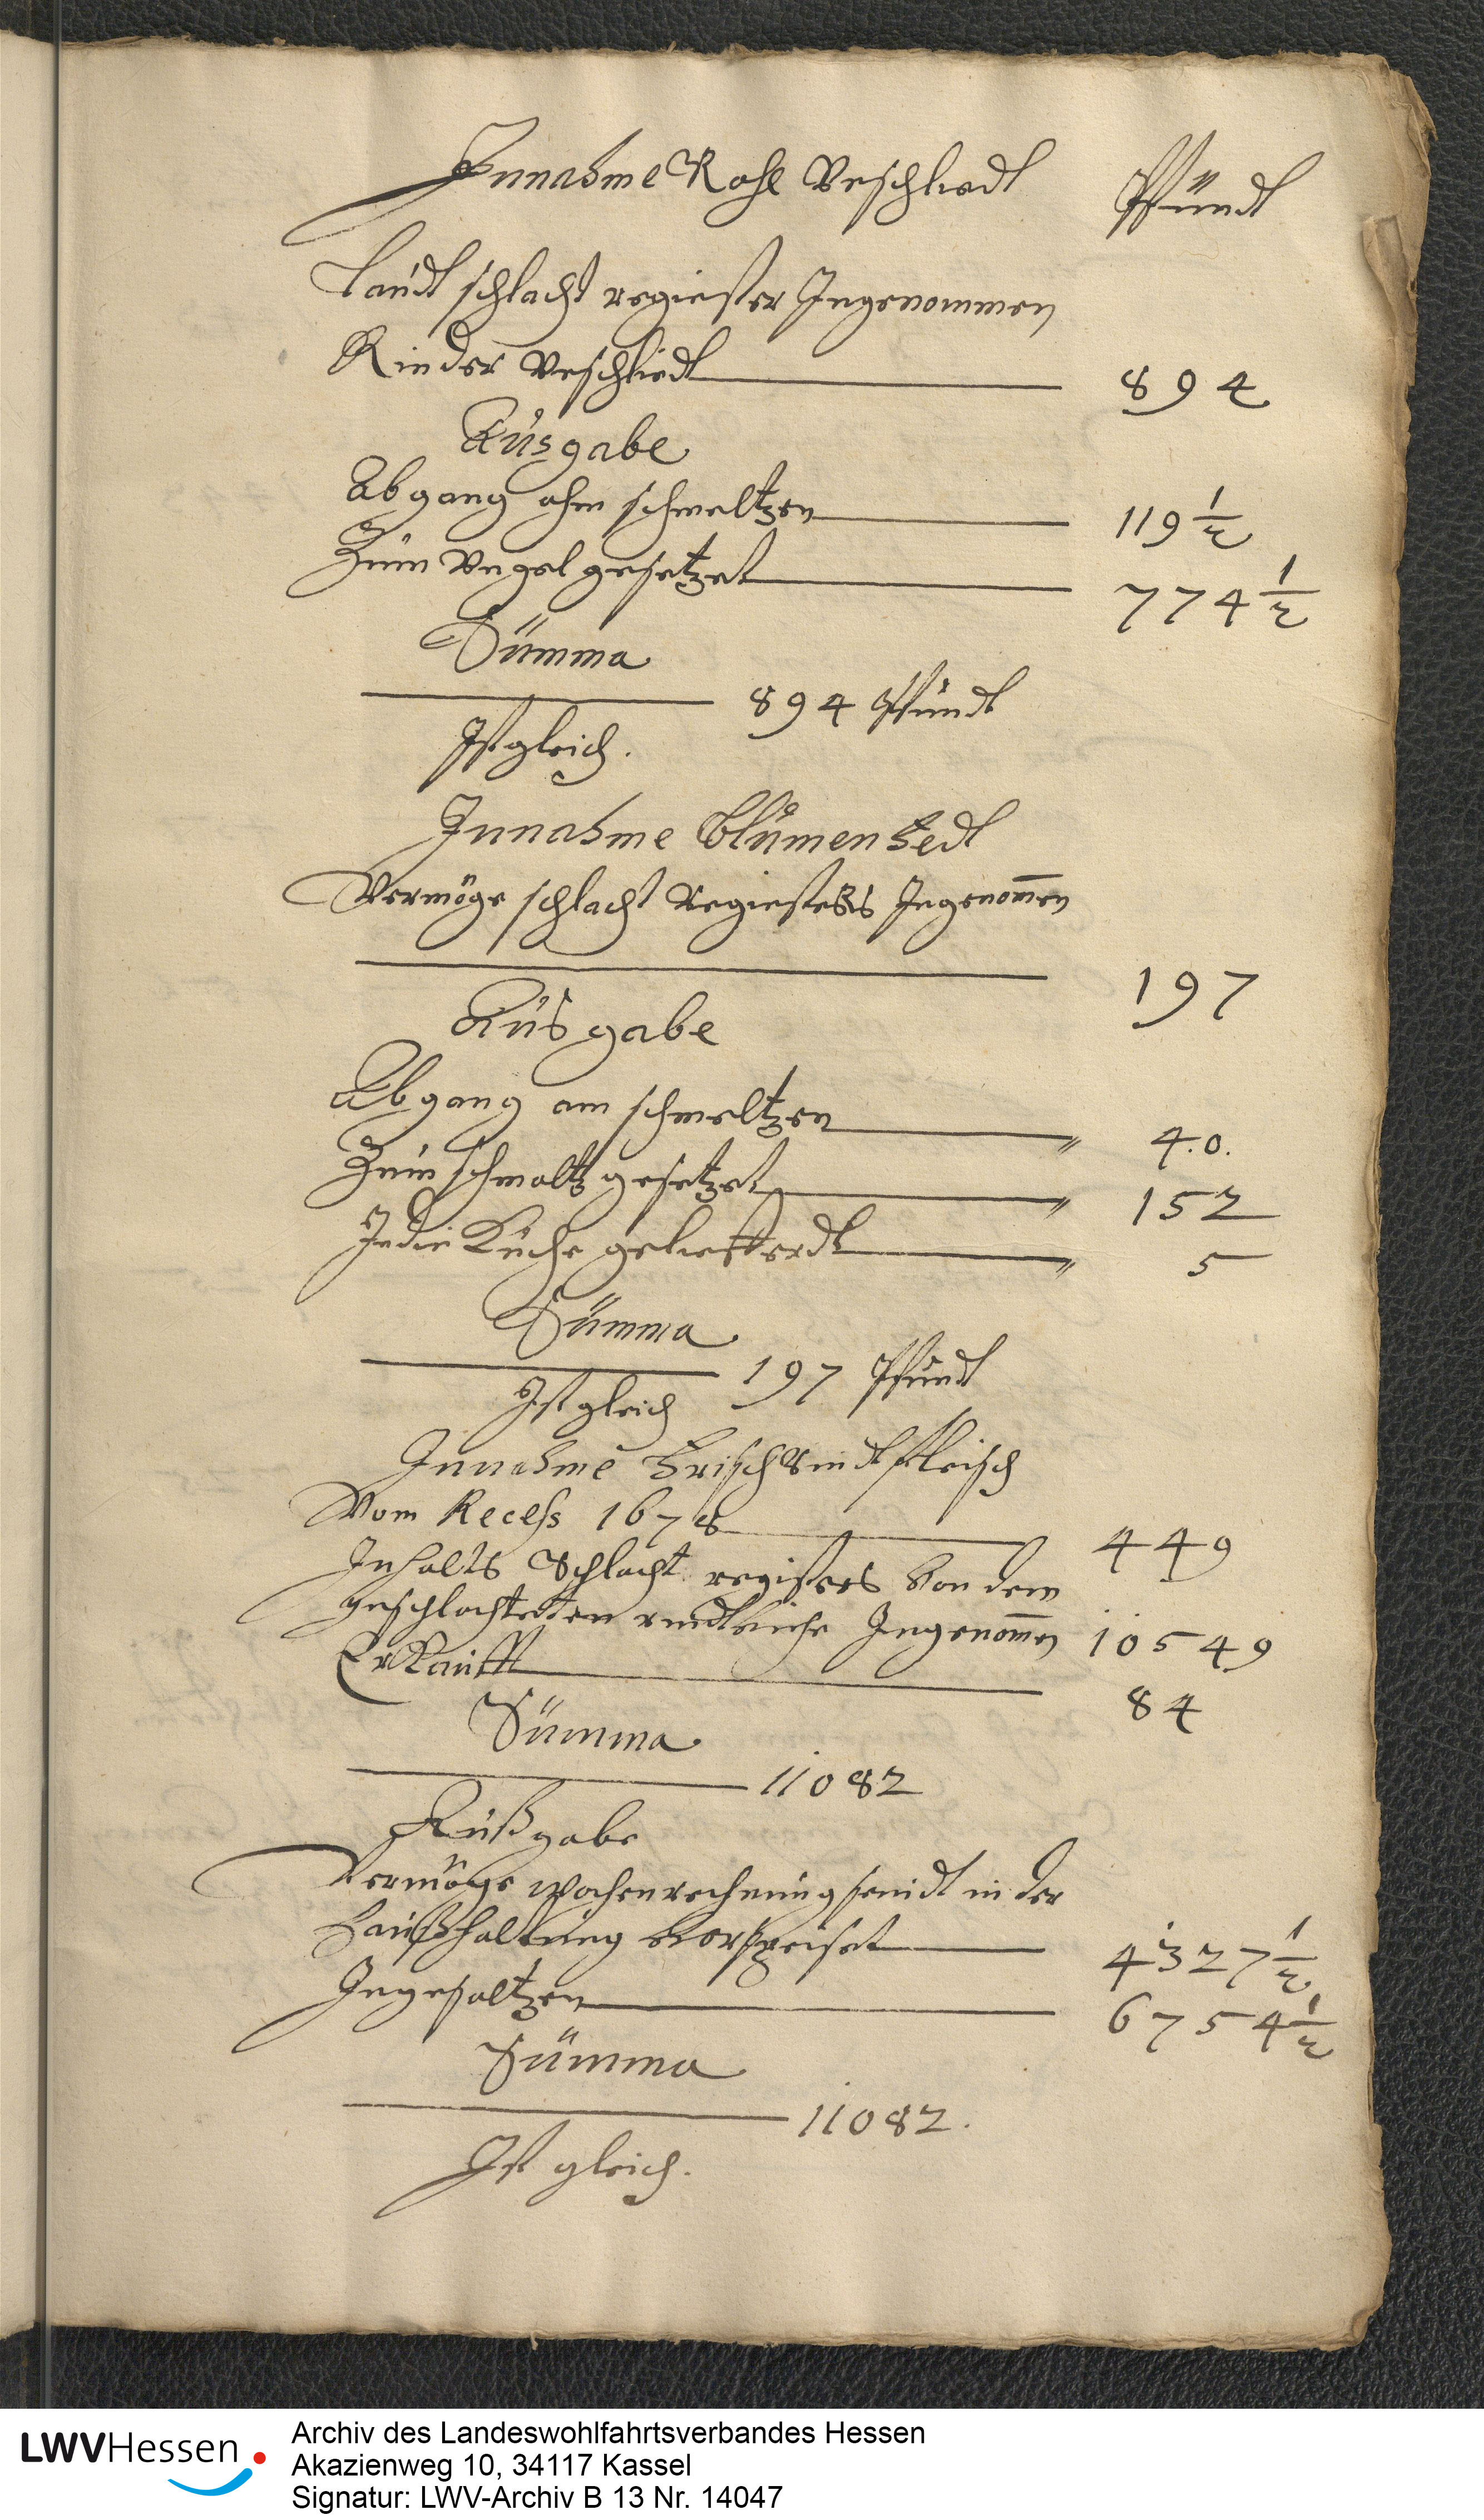 Innahme Rohe Veschliedt Pfundt
Laudt schlacht regiester Ingenommen
Rinder Veschliedt 894
Ausgabe
Abgang ahm schmeltzen 119 1/2
Zum Vngel gesetzet 774 1/2
Summa
894 Pfundt
Ist gleich.
Innahme Blumen Fedt
Vermöge schlacht Regiesters Ingenom̅en
197
Ausgabe
Abgang am schmeltzen 40.
Zum schmaltz gesetzet 152
In die Küche gelieffferdt 5
Summa
197 Pfundt
Ist gleich
Innahme Frisch Rindtfleisch
Vom Recess 1678 449
Inhalts Schlacht registers Von dem
geschlachteten rindtviehe Ingenom̅en 10549
Erkaufft 84
Summa
11082
Außgabe
Vermöge wochenrechnung seindt in der
Haußhaltung verspeiset 4327 1/2
Ingesaltzen 6754 1/2
Summa
11082.
Ist gleich.
LWVHessen
Archiv des Landeswohlfahrtsverbandes Hessen
Akazienweg 10, 34117 Kassel
Signatur: LWV-Archiv B 13 Nr. 14047